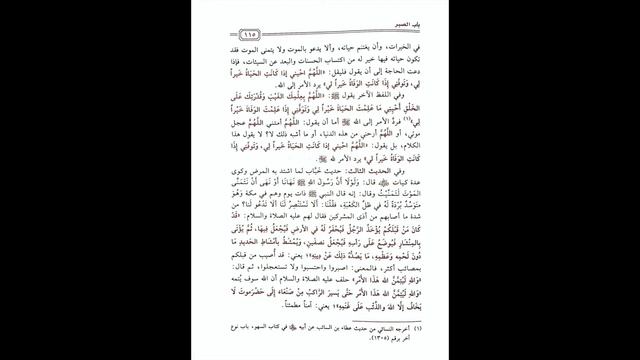 باب الصبر
١١٥
في الخيرات، وأن يغتنم حياته، وألا يدعو بالموت ولا يتمنى الموت فقد
تكون حياته فيها خير له من اكتساب الحسنات والبعد عن السيئات، فإذا
دعت الحاجة إلى أن يقول فليقل: «اللَّهُمَّ أحيني إِذَا كَانَتِ الحَيَاةُ خَيراً
لِي، وَتَوَفَّنِي إِذَا كَانَتِ الوَفَاةُ خَيراً لِي» يرد الأمر إلى الله.
وفي اللفظ الآخر يقول ﷺ: «اللَّهُمَّ بِعِلْمِكَ الغَيْبَ وَقُدْرَتِكَ عَلَى
الخَلْقِ أَحْيِنِي مَا عَلِمْتَ الحَيَاةَ خَيْراً لِي وَتَوَفَّنِي إِذَا عَلِمْتَ الوَفَاةَ خَيْراً
لِي»(١) فردَّ الأمر إلى الله ﷻ أما أن يقول: اللَّهُمَّ أمتني اللَّهُمَّ عجل
موتي، أو اللَّهُمَّ أرحني من هذه الدنيا، أو ما أشبه ذلك لا؟ لا يقول هذا
الكلام، بل يقول: «اللَّهُمَّ أحيني إِذَا كَانَتِ الحَيَاةُ خَيراً لِي، وَتَوَفَّنِي إِذَا
كَانَتِ الوَفَاةُ خَيراً لي» يرد الأمر لله ﷻ.
وفي الحديث الثالث: حديث خَبَّاب لما اشتد به المرض وكوي
عدة كيات قال: وَلَوْلَا أَنَّ رَسُولَ اللهِ ﷺ نَهَانَا أَوْ نَهَى أَنْ نَتَمَنَّى
المَوْتَ لَتَمَنَّيْتُ وقال: إنه قال النبي ﷺ ذات يوم وهم في مكة وَهُوَ
مُتَوَسِّدٌ بُرْدَةً لَهُ في ظلِّ الكَعْبَةِ، فقُلْنَا: أَلَا تَسْتَنْصِرُ لَنَا أَلَا تَدْعُو لَنَا؟ من
شدة ما أصابهم من أذى المشركين فقال لهم عليه الصلاة والسلام: «قَدْ
كَانَ مَنْ قَبْلَكُمْ يُؤْخَذُ الرَّجُلُ فَيُحْفَرُ لَهُ فِي الأَرْضِ فَيُجْعَلُ فِيهَا، ثُمَّ يُؤْتَى
بِالمِنْشَارِ فَيُوضَعُ عَلَى رَأْسِهِ فَيُجْعَلُ نصفَينِ، وَيُمْشَطُ بِأَمْشَاطِ الحَدِيدِ مَا
دُونَ لَحْمِهِ وَعَظْمِهِ، مَا يَصُدُّهُ ذَلِكَ عَنْ دِينِهِ» يعني: قد أصيب من قبلكم
بمصائب أكثر، فالمعنى: اصبروا واحتسبوا ولا تستعجلوا، ثم قال:
«وَاللهِ لَيُتِمَّنَّ اللهُ هَذَا الأمْرَ» حلف عليه الصلاة والسلام أن الله سوف يتمه
«وَاللهِ لَيُتِمَّنَّ اللهُ هَذَا الأَمْرَ حَتَّى يَسِيرَ الرَّاكِبُ مِنْ صَنْعَاءَ إِلَى حَضْرَمَوتَ لَا
يَخَافُ إِلَّا اللهَ وَالذِّئْبَ عَلَى غَنَمِهِ»؛ يعني: آمناً مطمئناً.
(١) أخرجه النسائي من حديث عطاء بن السائب عن أبيه في كتاب السهو، باب نوع
آخر برقم (١٣٠٥).